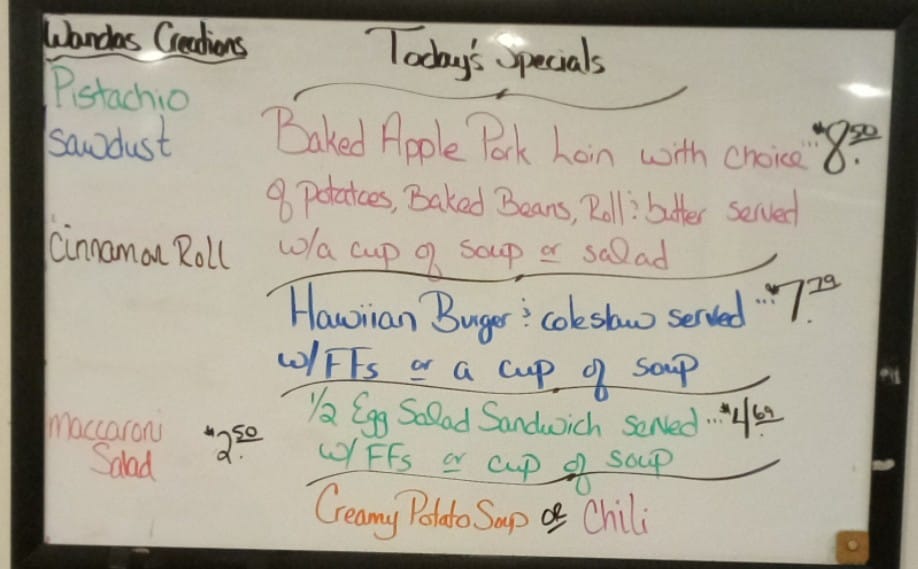 Wandas Creations
Pistachio
Sawdust
Cinnamon Roll
Maccaroni
Salad $2.50
Today's Specials
Baked Apple Pork Loin with choice... $8.50
of potatoes, Baked Beans, Roll & butter served
w/a cup of soup or salad
Hawiian Burger & coleslaw served ... $7.79
w/FFs or a cup of soup
1/2 Egg Salad Sandwich served ... $4.69
w/ FFs or cup of soup
Creamy Potato Soup or Chili